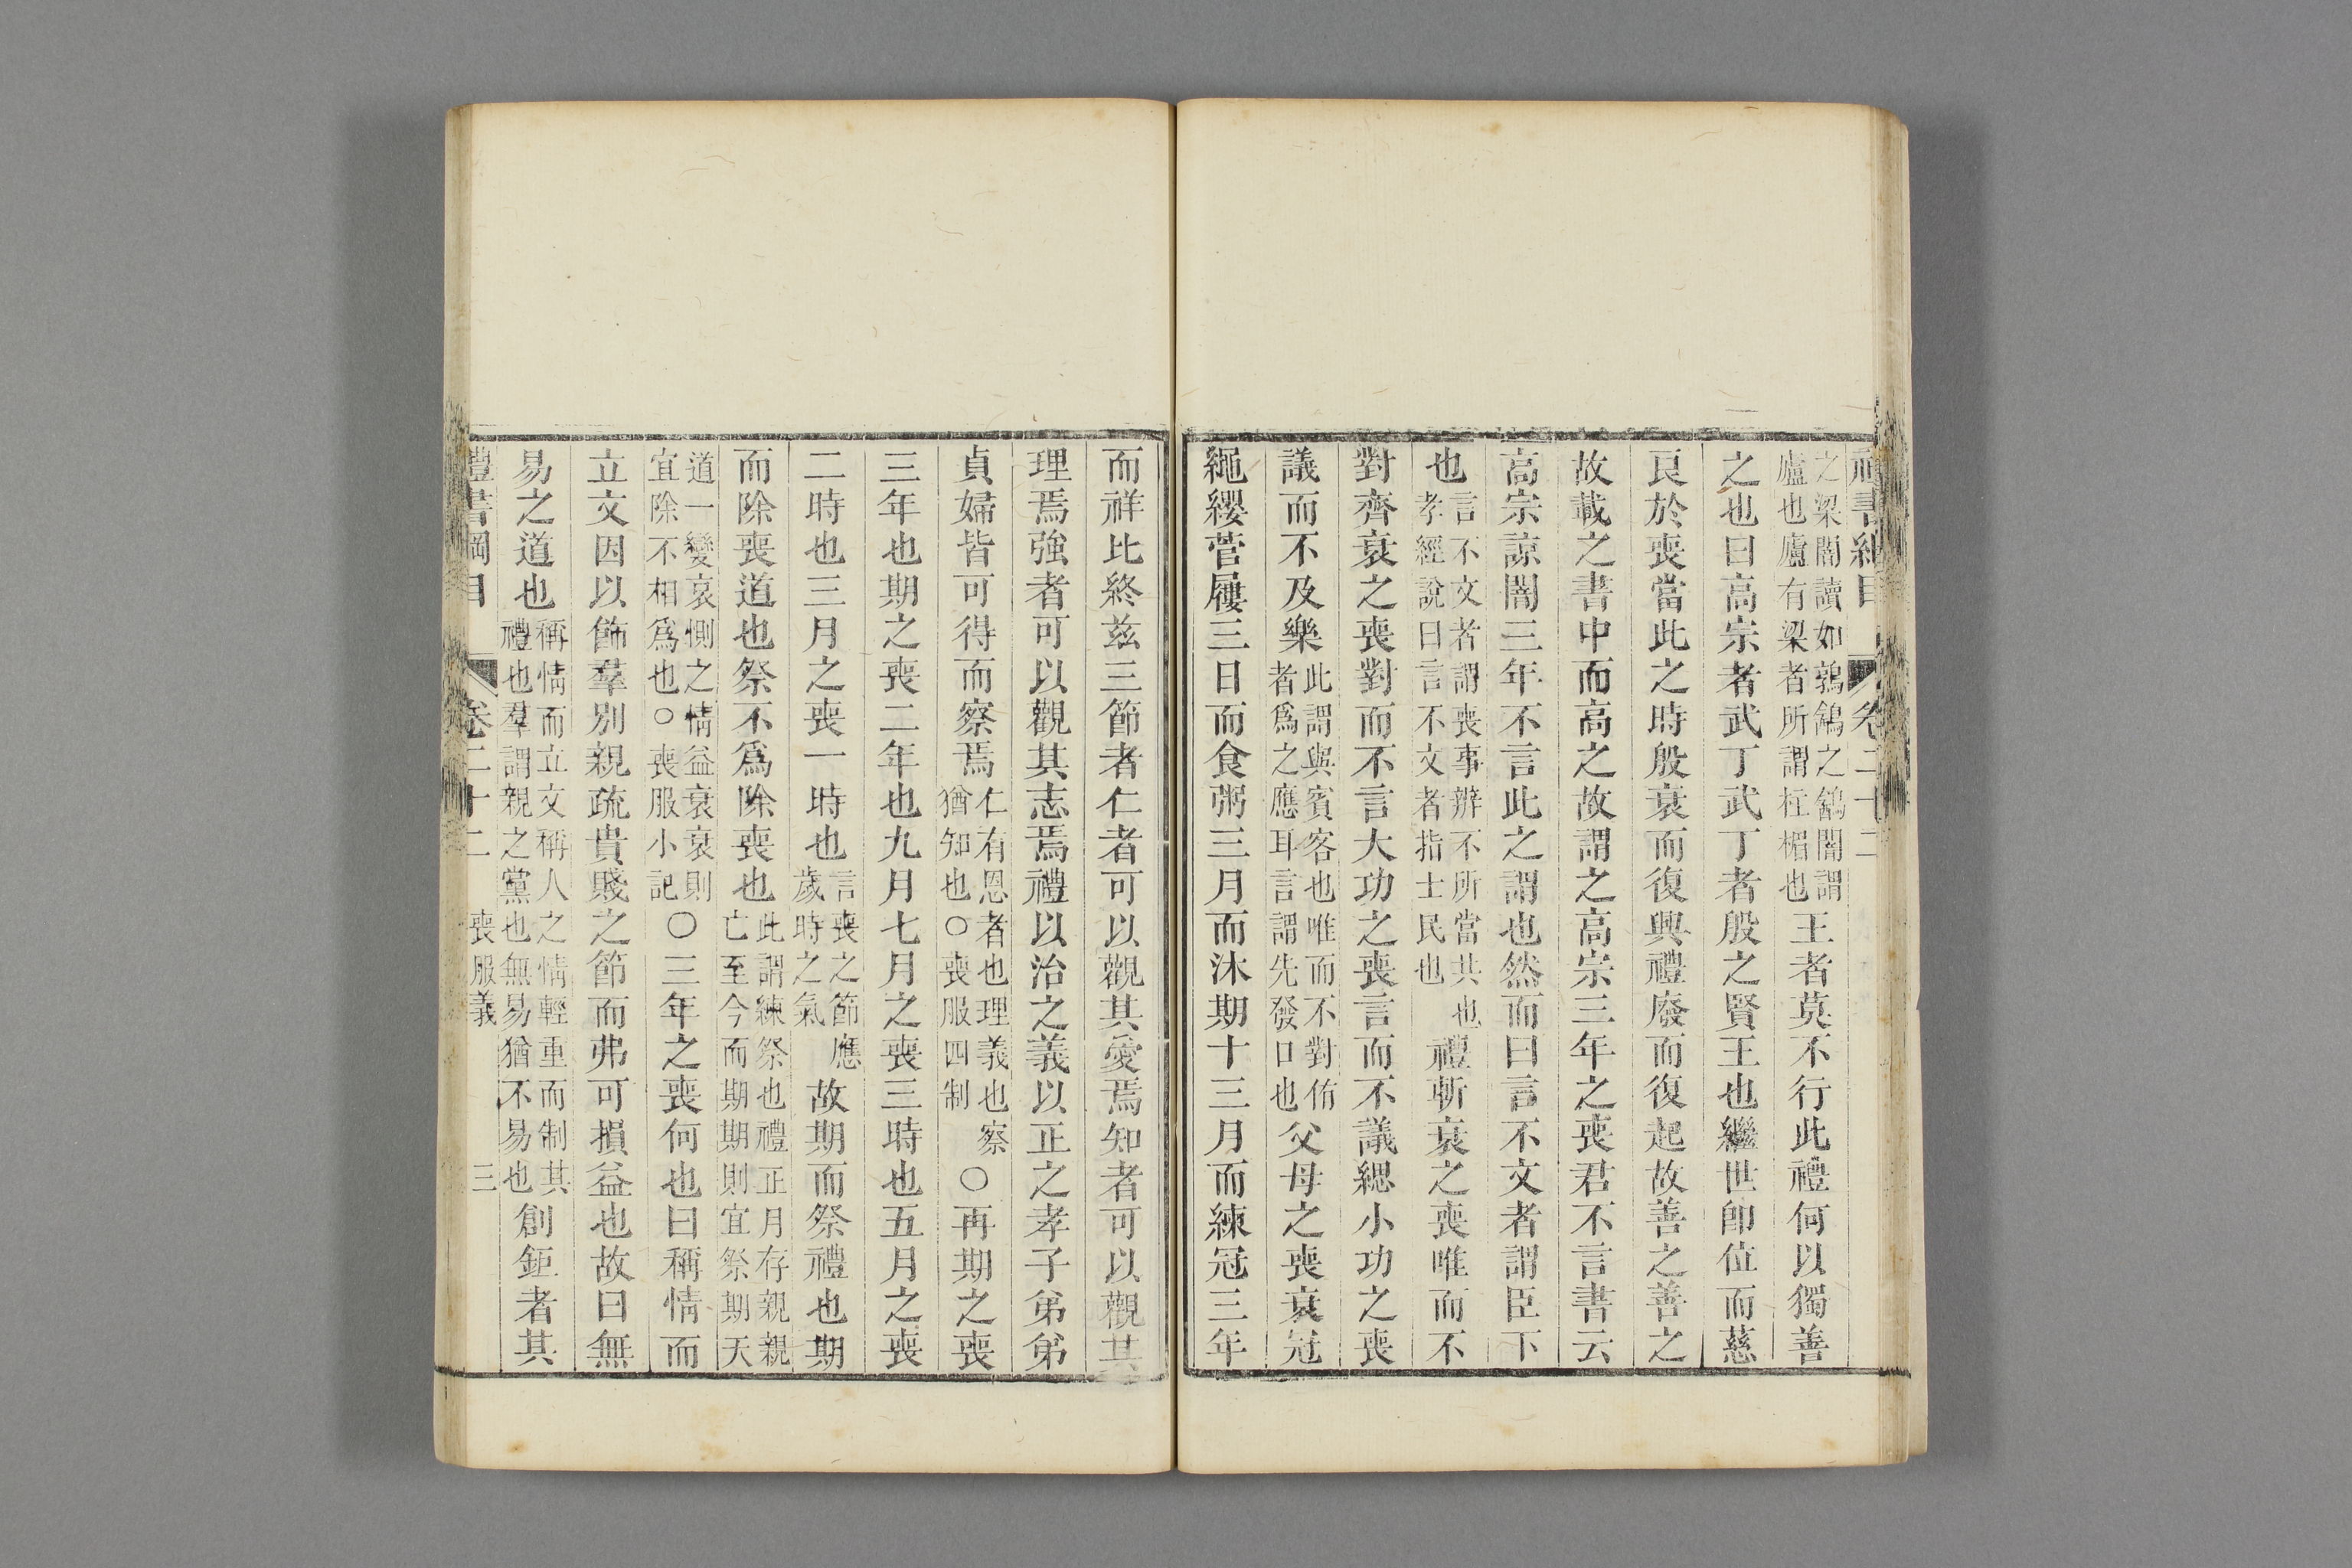 禮書綱目 卷二十二
之梁闇讀如鶉鵪之鵪闇謂廬也廬有梁者所謂柱楣也王者莫不行此禮何以獨善
之也曰高宗者武丁武丁者殷之賢王也繼世卽位而慈
良於喪當此之時殷衰而復興禮廢而復起故善之善之
故載之書中而高之故謂之高宗三年之喪君不言書云
高宗諒闇三年不言此之謂也然而曰言不文者謂臣下
也言不文者謂喪事辨不所當共也孝經說曰言不文者指士民也禮斬衰之喪唯而不
對齊衰之喪對而不言大功之喪言而不議緦小功之喪
議而不及樂此謂與賓客也唯而不對侑者爲之應耳言謂先發口也父母之喪衰冠
繩纓菅屨三日而食粥三月而沐期十三月而練冠三年
而祥比終茲三節者仁者可以觀其愛焉知者可以觀其
理焉強者可以觀其志焉禮以治之義以正之孝子弟弟
貞婦皆可得而察焉仁有恩者也理義也察猶知也○喪服四制○再期之喪
三年也期之喪二年也九月七月之喪三時也五月之喪
二時也三月之喪一時也言喪之節應歲時之氣故期而祭禮也期
而除喪道也祭不爲除喪也此謂練祭也禮正月存親親亡至今而期期則宜祭期天
道一變哀惻之情益衰衰則宜除不相爲也○喪服小記○三年之喪何也曰稱情而
立文因以飾羣別親疏貴賤之節而弗可損益也故曰無
易之道也稱情而立文稱人之情輕重而制其禮也羣謂親之黨也無易猶不易也創鉅者其
禮書綱目 卷二十二 喪服義 三